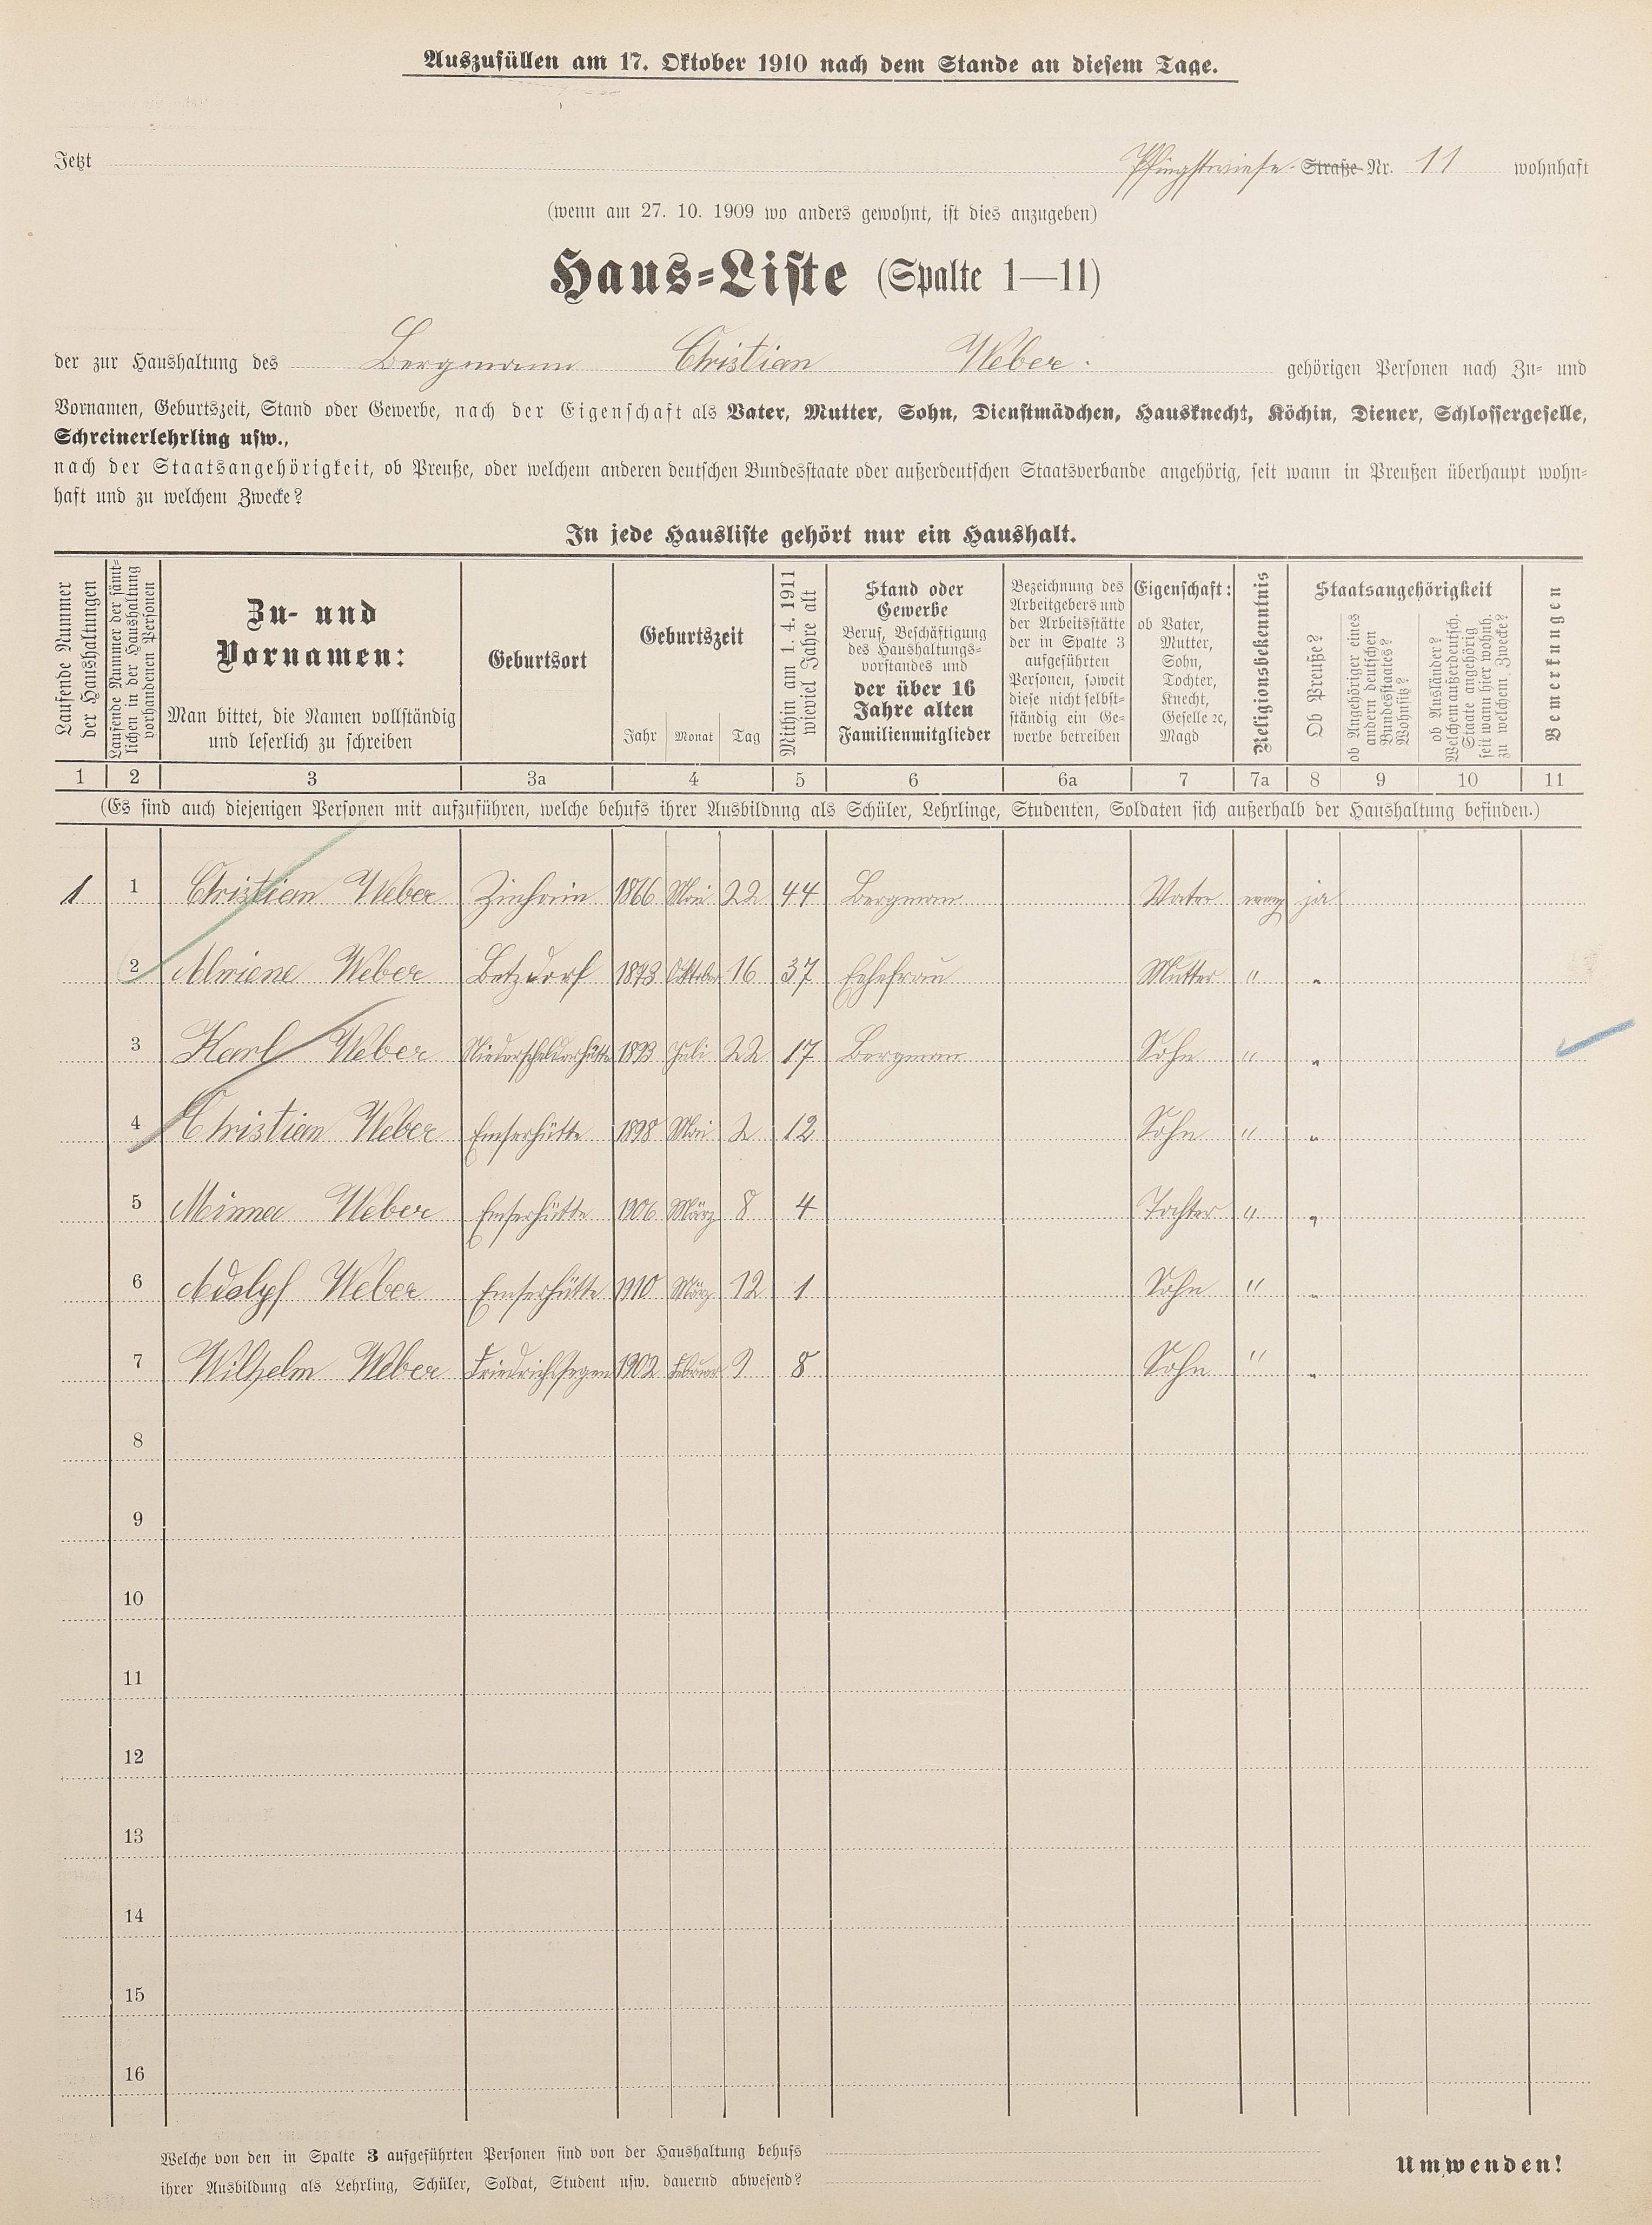 Auszufüllen am 17. Oktober 1910 nach dem Stande an diesem Tage.
Jetzt Pfingstwiese Straße Nr. 11 wohnhaft
(wenn am 27. 10. 1909 wo anders gewohnt, ist dies anzugeben)
Haus-Liste (Spalte 1—11)
der zur Haushaltung des Bergmann Christian Weber. gehörigen Personen nach Zu- und
Vornamen, Geburtszeit, Stand oder Gewerbe, nach der Eigenschaft als Vater, Mutter, Sohn, Dienstmädchen, Hausknecht, Köchin, Diener, Schlossergeselle,
Schreinerlehrling usw.,
nach der Staatsangehörigkeit, ob Preuße, oder welchem anderen deutschen Bundesstaate oder außerdeutschen Staatsverbande angehörig, seit wann in Preußen überhaupt wohn-
haft und zu welchem Zwecke?
In jede Hausliste gehört nur ein Haushalt.
Laufende Nummer
der Haushaltungen
Laufende Nummer der sämt-
lichen in der Haushaltung
vorhandenen Personen
Zu- und
Vornamen:
Man bittet, die Namen vollständig
und leserlich zu schreiben
Geburtsort
Geburtszeit
Jahr Monat Tag
Mithin am 1. 4. 1911
wieviel Jahre alt
Stand oder
Gewerbe
Beruf, Beschäftigung
des Haushaltungs-
vorstandes und
der über 16
Jahre alten
Familienmitglieder
Bezeichnung des
Arbeitgebers und
der Arbeitsstätte
der in Spalte 3
aufgeführten
Personen, soweit
diese nicht selbst-
ständig ein Ge-
werbe betreiben
Eigenschaft:
ob Vater,
Mutter,
Sohn,
Tochter,
Knecht,
Geselle ꝛc,
Magd
Religionsbekenntnis
Staatsangehörigkeit
Ob Preuße?
ob Angehöriger eines
andern deutschen
Bundesstaates?
Wohnsitz?
ob Ausländer?
Welchem außerdeutsch.
Staate angehörig
seit wann hier wohnh.
zu welchem Zwecke?
Bemerkungen
1 2 3 3a 4 5 6 6a 7 7a 8 9 10 11
(Es sind auch diejenigen Personen mit aufzuführen, welche behufs ihrer Ausbildung als Schüler, Lehrlinge, Studenten, Soldaten sich außerhalb der Haushaltung befinden.)
1 1 Christian Weber Zinhain 1866 Mai 22 44 Bergman Vater evang ja
2 Alwiene Weber Betzdorf 1873 Oktober 16 37 Eghefrau Mutter " "
3 Karl Weber Niederscheldenhütte 1893 Juli 22 17 Bergman Sohn " "
4 Christian Weber Emserhütte 1898 Mai 2 12 Sohn " "
5 Minna Weber Emserhütte 1906 März 8 4 Tochter " "
6 Adolpf Weber Emserhütte 1910 März 12 1 Sohn " "
7 Wilhelm Weber Friedrichssegen 1902 Februar 9 8 Sohn " "
8
9
10
11
12
13
14
15
16
Welche von den in Spalte 3 aufgeführten Personen sind von der Haushaltung behufs
ihrer Ausbildung als Lehrling, Schüler, Soldat, Student usw. dauernd abwesend?
Umwenden!